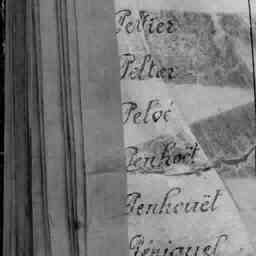 Peltier
Pelter
Peloé
Penhoët
Penhouët
Péniguel